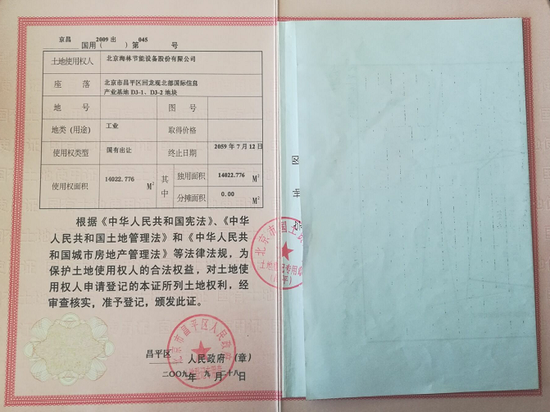 京昌 2009 出 045
国用( )第 号
土地使用权人 北京梅林节能设备股份有限公司
座 落 北京市昌平区回龙观北部国际信息
产业基地 D3-1、D3-2 地块
地 号 图 号
地类(用途) 工业 取得价格
使用权类型 国有出让 终止日期 2059 年 7 月 12 日
使用权面积 14022.776 M² 其中 独用面积 14022.776 M²
分摊面积 0.00 M²
根据《中华人民共和国宪法》、《中华
人民共和国土地管理法》和《中华人民共
和国城市房地产管理法》等法律法规,为
保护土地使用权人的合法权益,对土地使
用权人申请登记的本证所列土地权利,经
审查核实,准予登记,颁发此证。
昌平区 人民政府(章)
二〇〇九年 九 月 十八 日
北京市昌平区人民政府
北京市国土